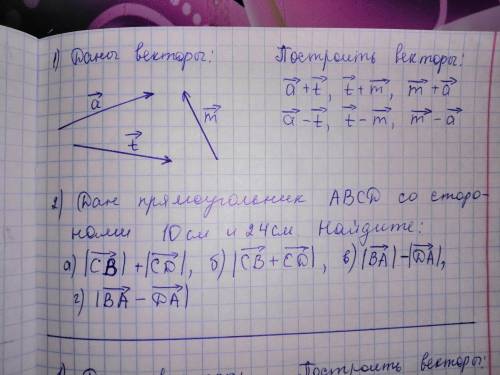 1) Даны векторы: Построить векторы:
a⃗ t⃗ m⃗
a⃗+t⃗, t⃗+m⃗, m⃗+a⃗
a⃗-t⃗, t⃗-m⃗, m⃗-a⃗
2) Дан прямоугольник ABCD со сторо-
нами 10см и 24см Найдите:
а) |C͞B⃗|+|C͞D⃗|, б) |C͞B⃗+C͞D⃗|, в) |B͞A⃗|-|D͞A⃗|,
г) |B͞A⃗-D͞A⃗|
Построить векторы: